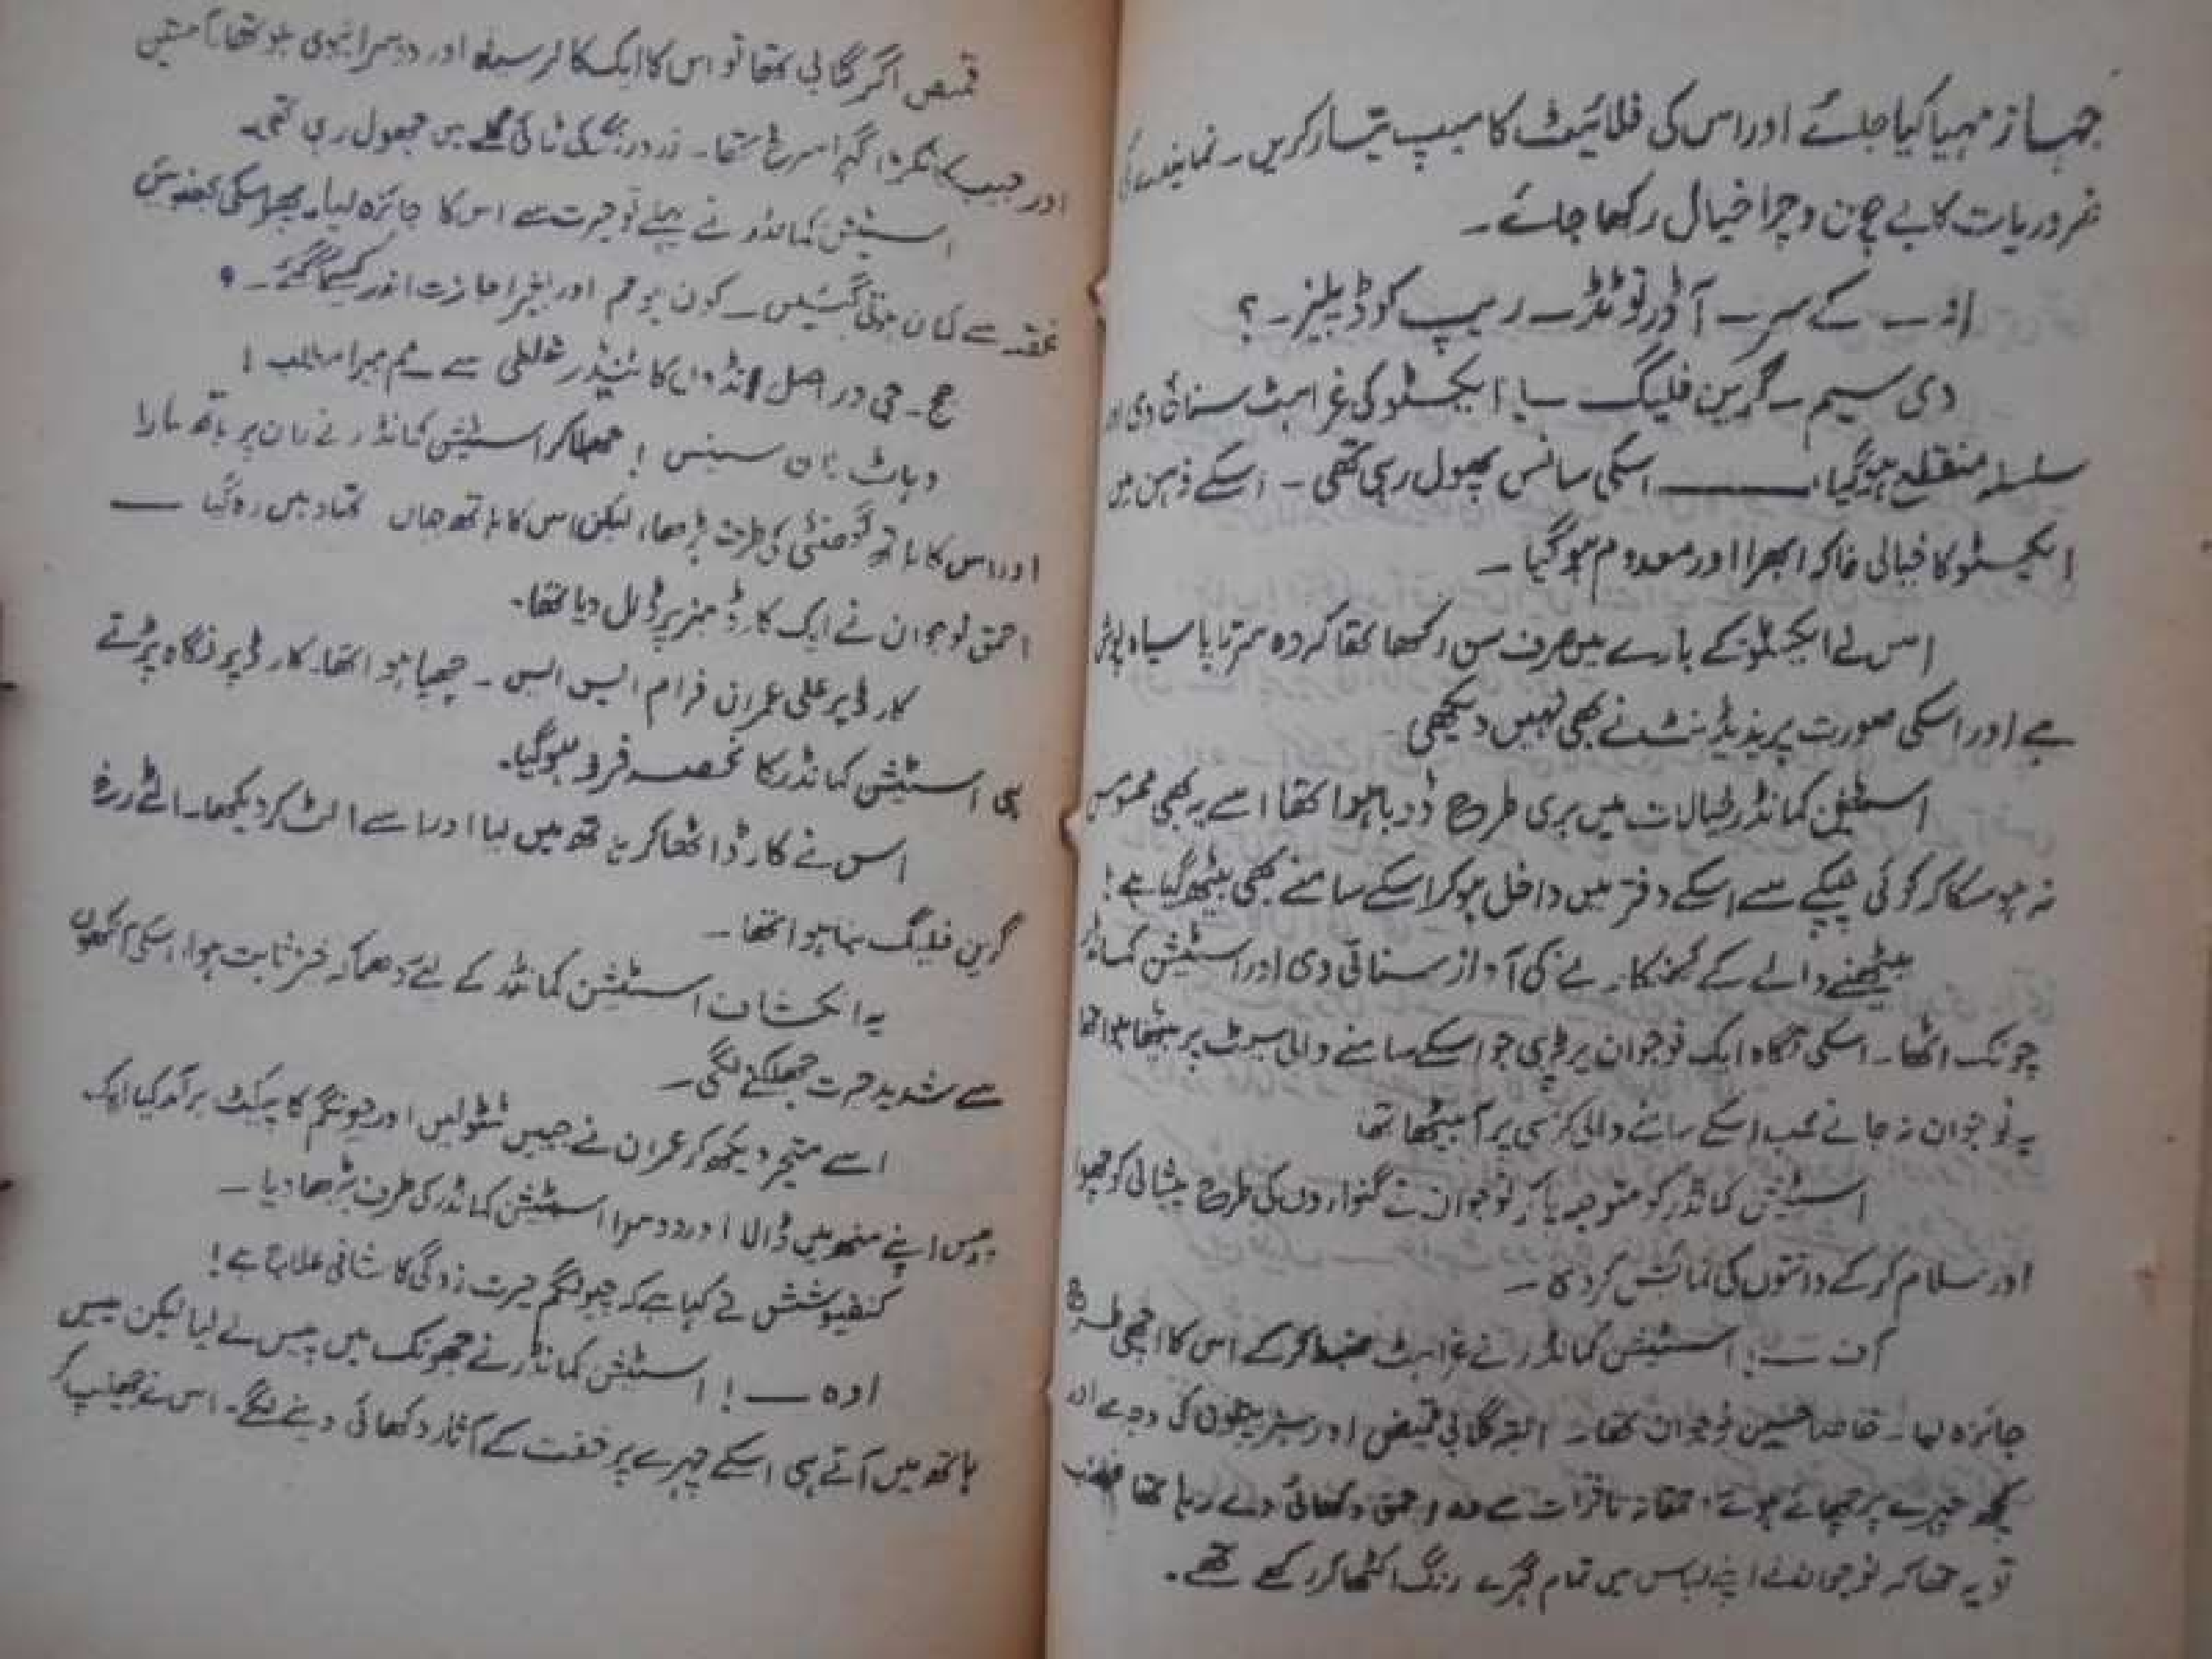 جہاز مہیا کیا جائے اور اس کی فلائیٹ کا میپ تیار کریں۔ نمایندے کی
ضروریات کا بے چون و چرا خیال رکھا جائے۔
او۔ کے سر۔ آڈر نوٹڈ۔ ریپ کوڈ پلیز۔ ؟
دی سیم۔ گرین فلیگ۔ ایکسٹو کی غراہٹ سنائی دی اور
سلسلہ منقطع ہوگیا، ــــ اسکی سانس پھول رہی تھی۔ اسکے ذہن میں
ایکسٹو کا خیالی خاکہ ابھرا اور معدوم ہوگیا۔
اس نے ایکسٹو کے بارے میں صرف سن رکھا تھا کہ وہ سرتاپا سیاہ پوش
ہے اور اسکی صورت پریذیڈنٹ نے بھی نہیں دیکھی۔
اسٹیشن کمانڈر خیالات میں بری طرح ڈوبا ہوا تھا اسے یہ بھی محسوس
نہ ہوسکا کہ کوئی چپکے سے اسکے دفتر میں داخل ہوکر اسکے سامنے بھی بیٹھ گیا ہے!
بیٹھنے والے کے کھنکارنے کی آواز سنائی دی اور اسٹیشن کمانڈر
چونک اٹھا۔ اسکی نگاہ ایک نوجوان پر پڑی جو اسکے سامنے والی سیٹ پر بیٹھا ہوا تھا
یہ نوجوان نہ جانے کب اسکے سامنے والی کرسی پر آ بیٹھا تھا
اسٹیشن کمانڈر کو متوجہ پاکر نوجوان نے گنواروں کی طرح پیشانی کو چھوا
اور سلام کرکے دانتوں کی نمائش کردی۔
اف ــ! اسٹیشن کمانڈر نے غراہٹ ضبط کرکے اس کا اچھی طرح
جائزہ لیا۔ خاصا حسین نوجوان تھا۔ البتہ گلابی قمیض اور سبز پتلون کی وجہ سے اور
کچھ چہرے پر چھائے ہوئے حمقانہ تاثرات سے وہ احمق دکھائی دے رہا تھا غضب
تو یہ تھا کہ نوجوان نے اپنے لباس میں تمام گہرے رنگ اکٹھا کر رکھے تھے۔
قمیص اگر گلابی تھا تو اس کا ایک کالر سفید اور دوسرا نیوی بلو تھا آستین
اور جیب کا ٹکڑا گہرا سرخ تھا۔ زرد رنگ کی ٹائی گلے میں جھول رہی تھی۔
اسٹیشن کمانڈر نے پہلے تو حیرت سے اس کا جائزہ لیا۔ پھر اسکی بھنویں
غصہ سے کمان ہوتی گئیں۔ کون ہو تم اور بغیر اجازت اندر کیسے آگئے۔ ؟
ج۔ جی در اصل انڈوں کا ٹینڈر غلطی سے۔ مم میرا مطلب!
وہاٹ نان سینس! جھلا کر اسٹیشن کمانڈر نے ران پر ہاتھ مارا
اور اس کا ہاتھ گھنٹی کی طرف بڑھا، لیکن اس کا ہاتھ جہاں تھا وہیں رہ گیا ــــ
احمق نوجوان نے ایک کارڈ میز پر ڈال دیا تھا۔
کارڈ پر علی عمران فرام ایس ایس۔ چھپا ہوا تھا۔ کارڈ پر نگاہ پڑتے
ہی اسٹیشن کمانڈر کا غصہ فرو ہوگیا۔
اس نے کارڈ اٹھا کر ہاتھ میں لیا اور اسے الٹ کر دیکھا۔ الٹے رخ
گرین فلیگ بنا ہوا تھا۔
یہ انکشاف اسٹیشن کمانڈر کے لئے دھماکہ خیز ثابت ہوا، اسکی آنکھوں
سے شدید حیرت جھلکنے لگی۔
اسے متحیر دیکھ کر عمران نے جیبیں ٹٹولیں اور چونگم کا پیکٹ برآمد کیا ایک
پیس اپنے منھ میں ڈالا اور دوسرا اسٹیشن کمانڈر کی طرف بڑھا دیا۔
کنفیوشش نے کہا ہے کہ چونگم حیرت زدگی کا شافی علاج ہے!
اوہ ــ! اسٹیشن کمانڈر نے جھونک میں پیس لے لیا لیکن پیس
ہاتھ میں آتے ہی اسکے چہرے پر خفت کے آثار دکھائی دینے لگے۔ اس نے جھینپ کر